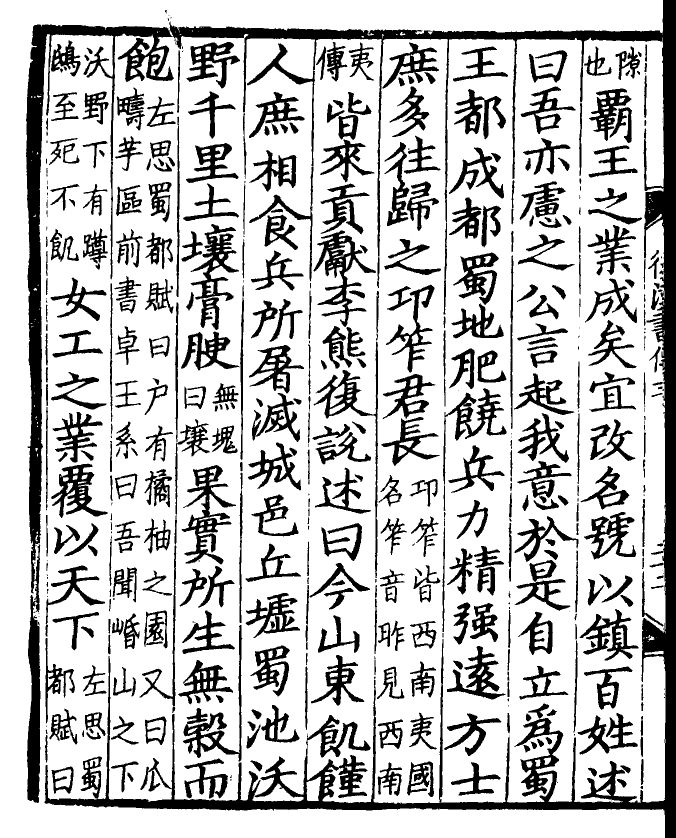 隙也覇王之業成矣宜改名號以鎮百姓述
曰吾亦慮之公言起我意於是自立爲蜀
王都成都蜀地肥饒兵力精强遠方士
庶多往歸之邛笮君長邛笮皆西南夷國名笮音昨見西南
夷傳皆來貢獻李熊復說述曰今山東飢饉
人庶相食兵所屠滅城邑丘墟蜀池沃
野千里土壤膏腴無塊曰壤果實所生無穀而
飽左思蜀都賦曰户有橘柚之園又曰瓜疇芋區前書卓王系曰吾聞崏山之下
沃野下有蹲鴟至死不飢女工之業覆以天下左思蜀都賦曰